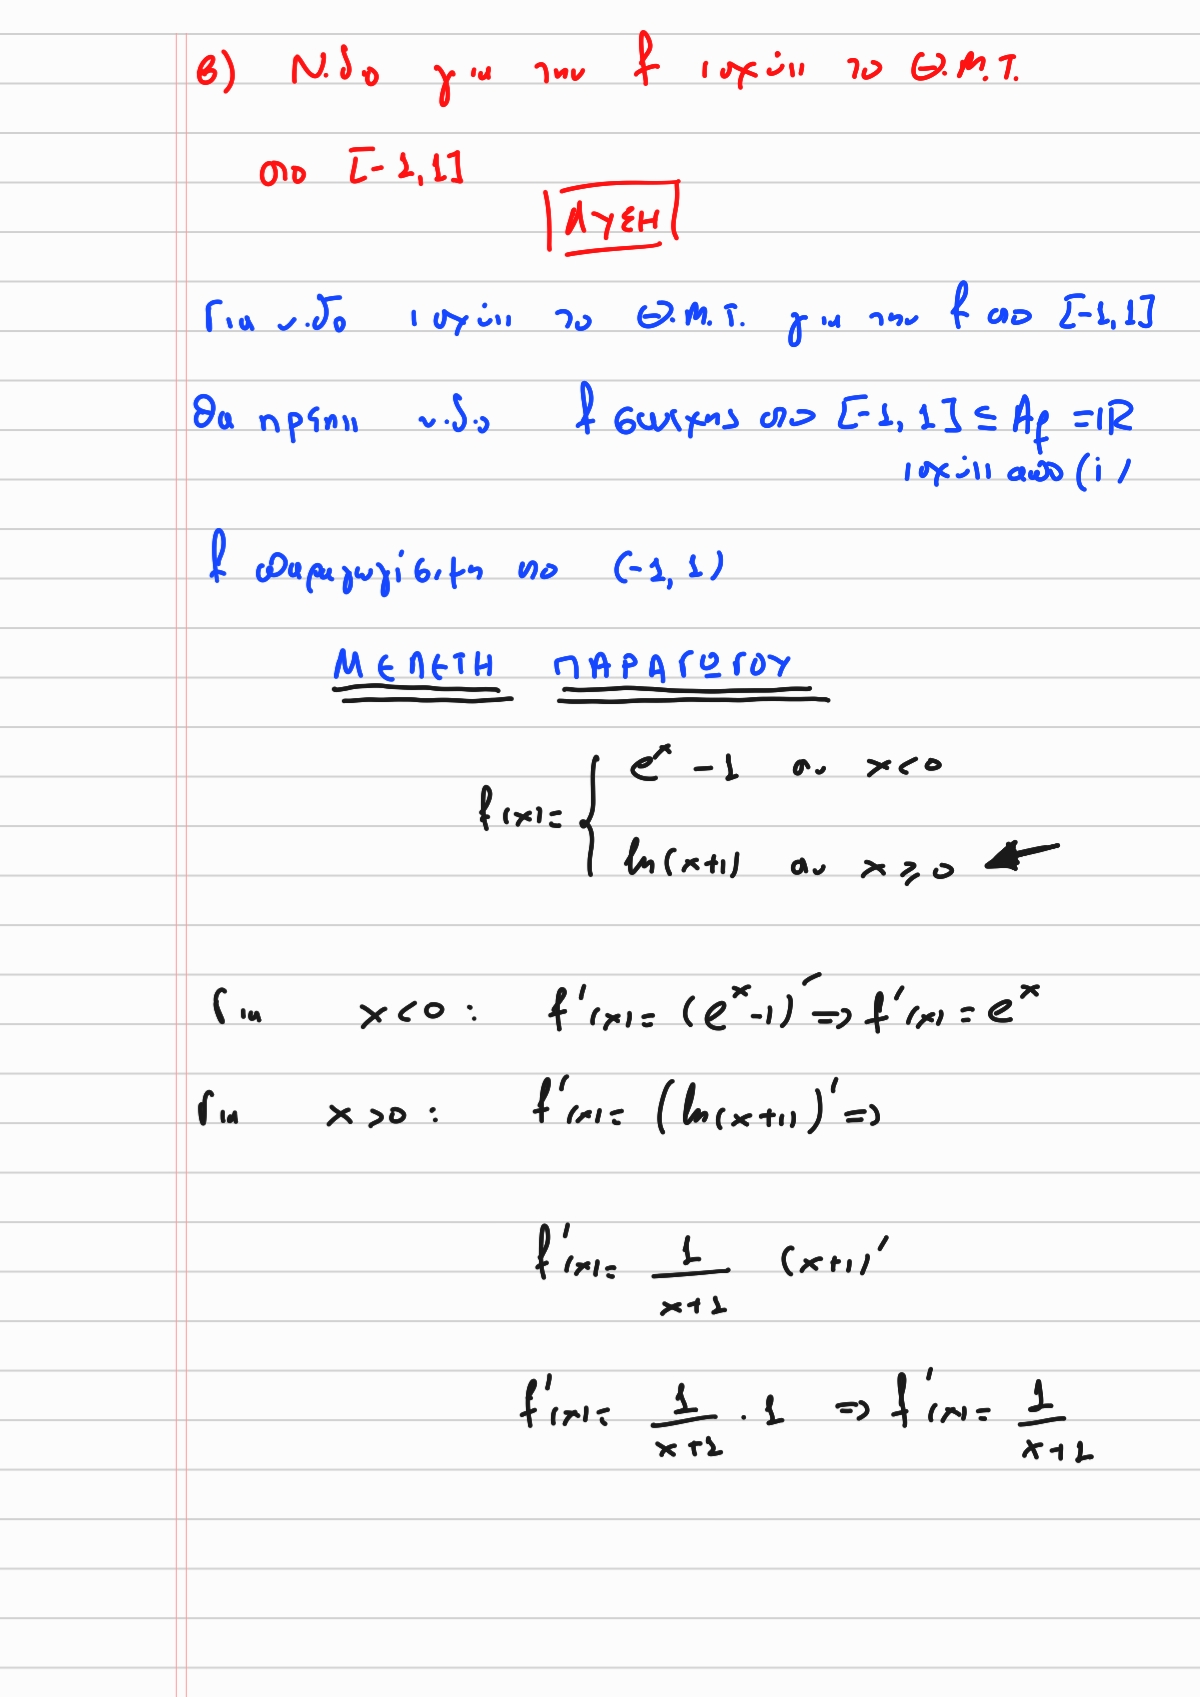 β) Ν.δο για την f ισχύει το Θ.Μ.Τ.
στο [-1,1]
ΛΥΣΗ
Για ν.δο ισχύει το Θ.Μ.Τ. για την f στο [-1,1]
θα πρέπει ν.δ.ο f συνεχης στο [-1,1] ⊆ Af = ℝ
ισχύει από (i)
f παραγωγίσιμη στο (-1,1)
ΜΕΛΕΤΗ ΠΑΡΑΓΩΓΟΥ
f(x) = { e^x - 1 αν x<0
ln(x+1) αν x ≥ 0
Για x<0 : f'(x) = (e^x-1)' => f'(x) = e^x
Για x>0 : f'(x) = (ln(x+1))' =>
f'(x) = 1/(x+1) (x+1)'
f'(x) = 1/(x+1) · 1 => f'(x) = 1/(x+1)